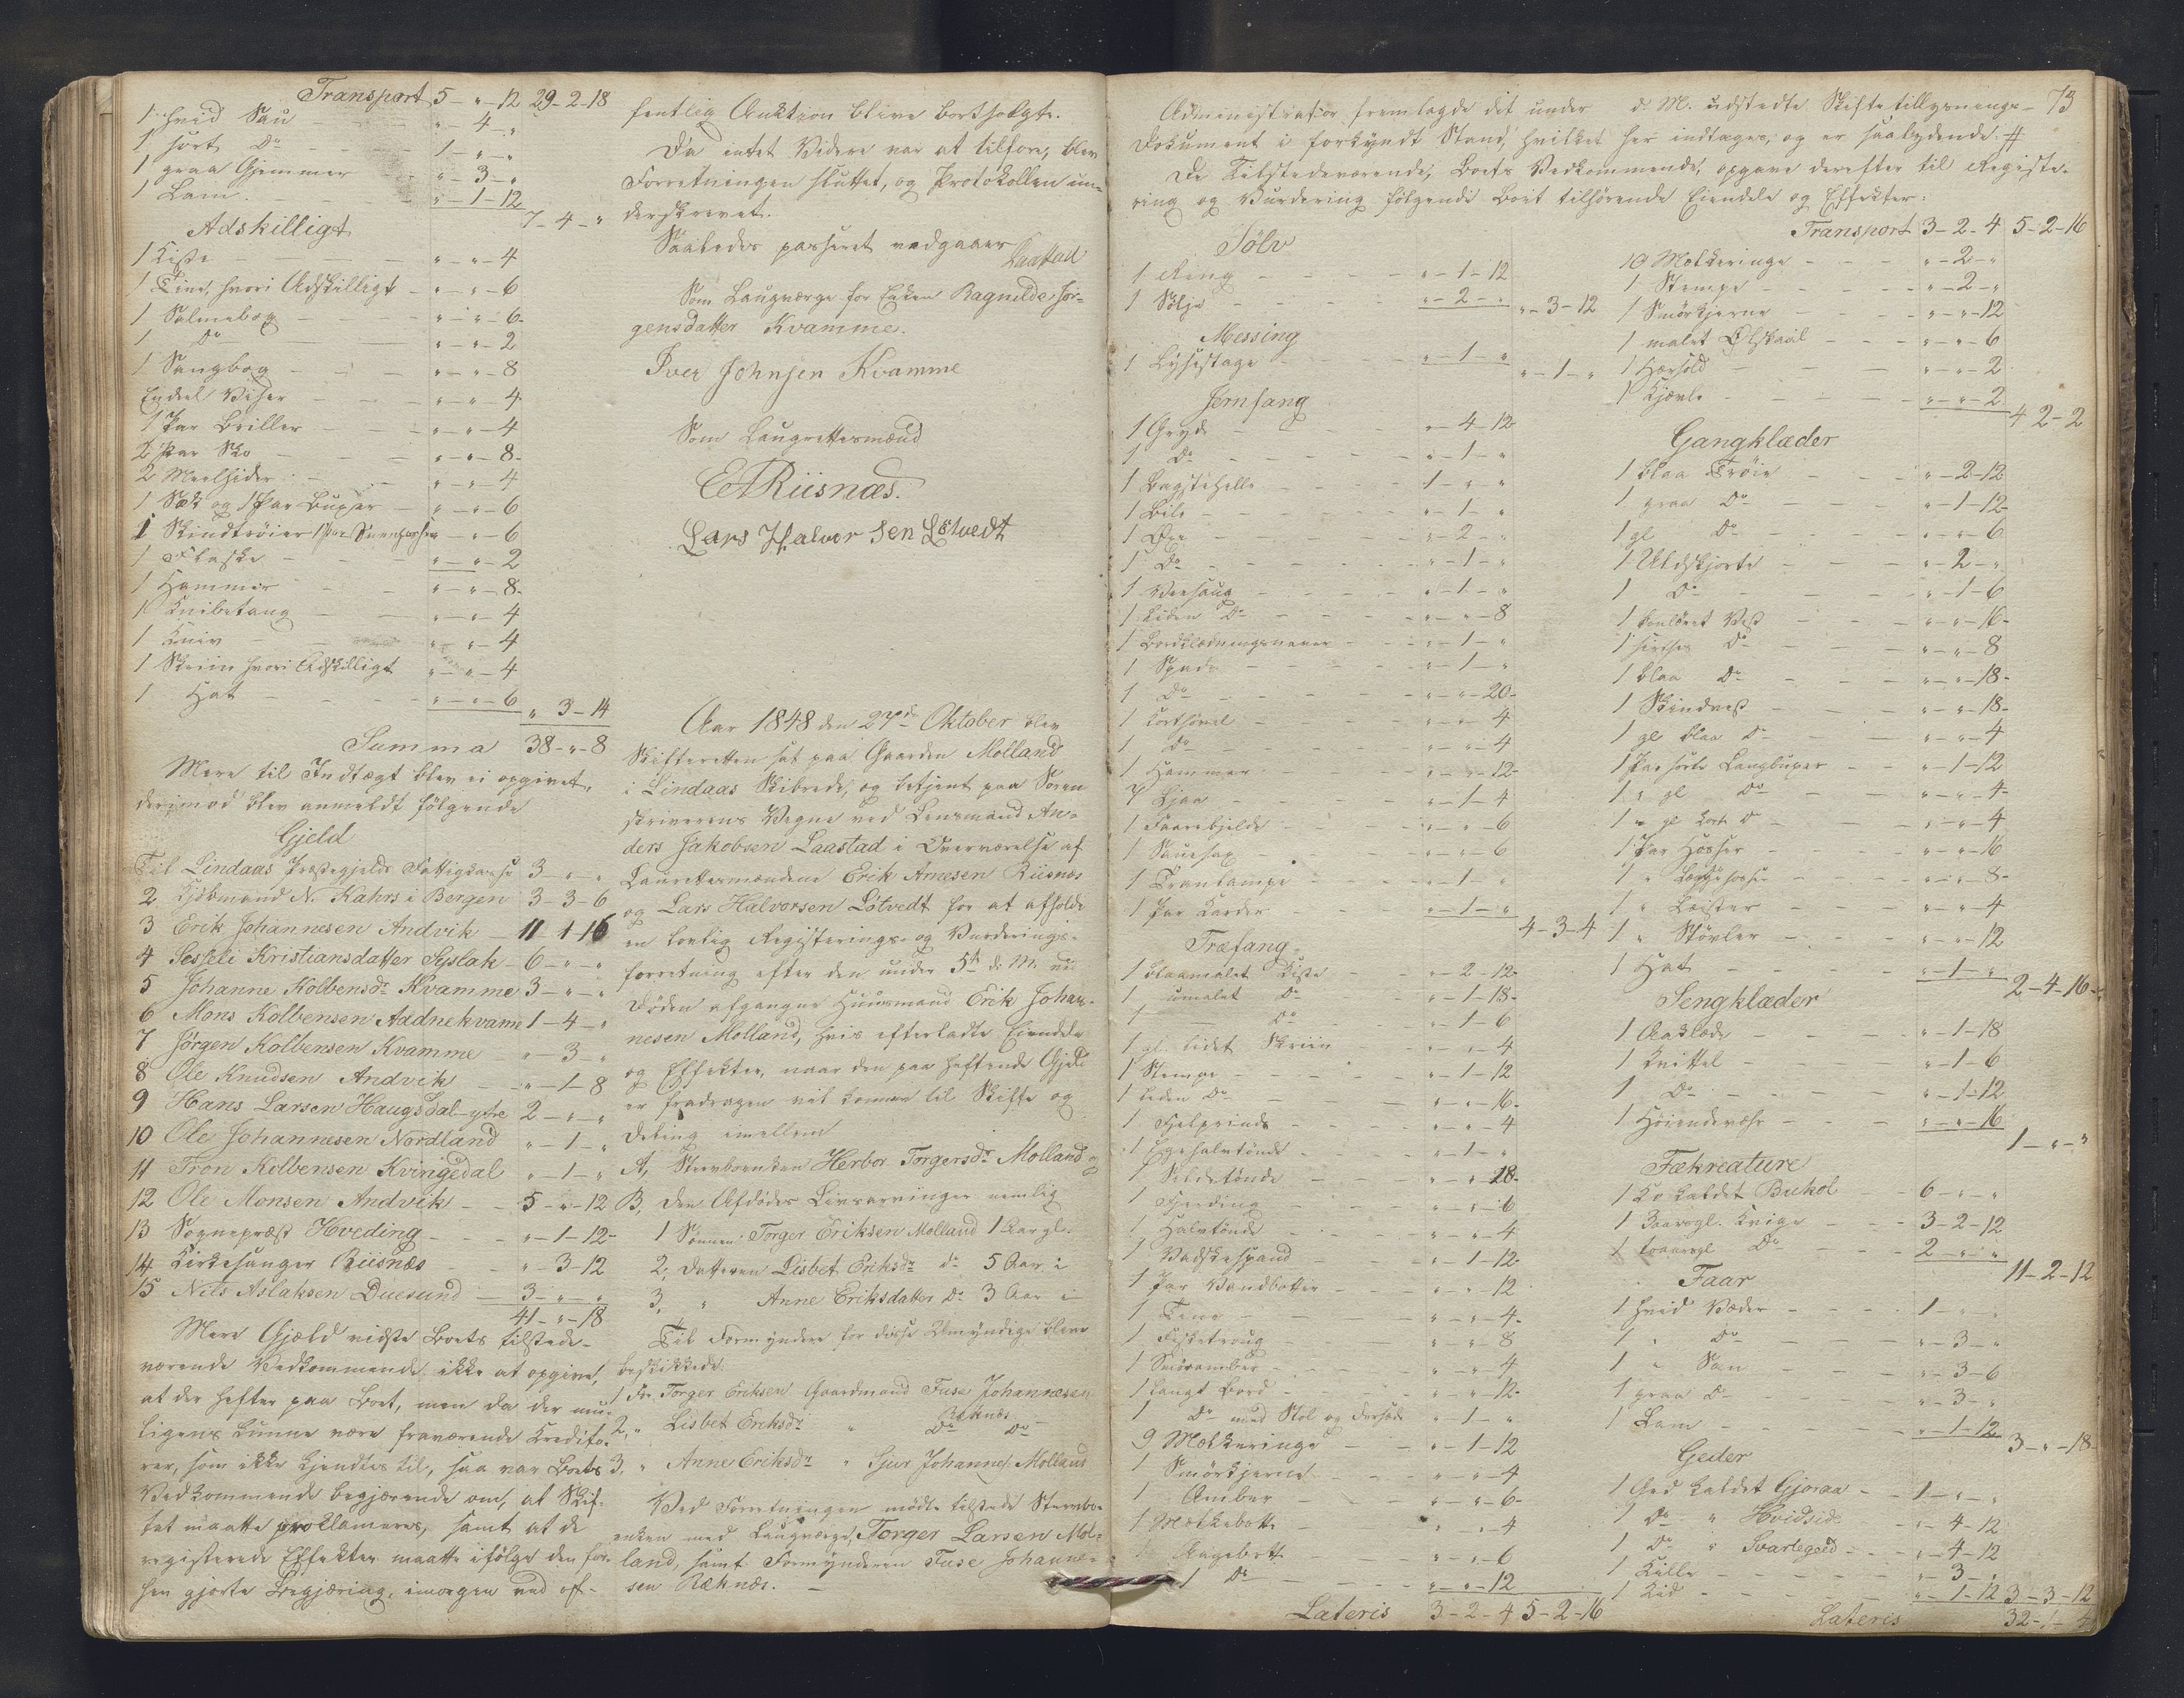 Transport 5 - " - 12 29 - 2 - 18
1 hvid Sau " - 4 - "
1 sort Do 1 - " - "
1 graa Gimmer " - 3 - "
1 Lam " - 1 - 12
7 - 4 - "
Adskilligt
1 Kiste " - " - 4
1 Tine, hvori Adskilligt " - " - 6
1 Salmebog " - " - 6
1 Do " - " - 2
1 Sangbog " - " - 8
Endeel Viser " - " - 4
1 Par Briller " - " - 4
2 Par Sko " - " - 8
2 Meelsider " - " - 4
1 Sæk og 1 Par Buxer " - " - 6
1 Skindtrøier 1 Par " - " - 6
1 Flaske " - " - 2
1 Hammer " - " - 8
1 Knibetang " - " - 4
1 Kniv " - " - 4
1 Skriin hvori Adskilligt " - " - 4
1 Hat " - " - 6
" 3 - 14
Summa 38 - " - 8
Mere til Indtægt blev ei opgivet,
derimod blev anmeldt følgende
Gjeld
Til Lindaas Præstegjelds Fattigkasse 3 - " - "
2 Kjøbmand N. Kahrs i Bergen 3 - 3 - 6
3 Erik Johannesen Andvik 11 - 1 - 16
4 Seseli Kristiansdatter Syslak 6 - " - "
5 Johanne Kolbensdr Kvamme 3 - " - "
6 Mons Kolbensen Aadnekvamme 1 - 4 - "
7 Jørgen Kolbensen Kvamme " - 3 - "
8 Ole Knudsen Andvik " - 1 - 8
9 Hans Larsen Haugsdal-ytre 2 - " - "
10 Ole Johannesen Nordland " - 1 - "
11 Tron Kolbensen Kvingedal " - 1 - "
12 Ole Monsen Andvik 5 - " - 12
13 Sognepræst Hveding " - 1 - 12
14 Kirkesanger Riisnæs " - 3 - 12
15 Nils Aslaksen Duesund 3 - " - "
41 - " - 18
Mere Gjæld vidste Boets tilstede-
værende Vedkommende ikke at opgive,
at der hefter paa Boet, men da der mu-
ligens kunne være fraværende Kredito-
rer, som ikke kjendtes til, saa var Boets
Vedkommende begjærende om, at Skif-
tet maatte proklameres, samt at de
registerede Effekter maatte ifølge den for-
hen gjorte Begjæring, imorgen ved of-
fentlig Auktion blive bortsolgte.
Da intet Videre var at tilføre, blev
Forretningen sluttet, og Protokollen un-
derskrevet.
Saaledes passeret vedgaaer
Laastad
Som Laugværge for Enken Ragnilde Jør-
gensdatter Kvamme.
Iver Johnsen Kvamme
Som Laugrettesmænd
EARiisnæs.
Lars Halvorsen Løtvedt
Aar 1848 den 27de Oktober blev
Skifteretten sat paa Gaarden Molland
i Lindaas Skibrede, og betjent paa Soren
skriverens Vegne ved Lensmand An-
ders Jakobsen Laastad i Overværelse af
Laurettesmændene Erik Arnesen Riisnæs
og Lars Halvorsen Løtvedt for at afholde
en lovlig Registerings- og Vurderings-
forretning efter den under 5te d. M. ved
Døden afgangne Huusmand Erik Johan-
nesen Molland, hvis efterladte Eiendele
og Effekter, naar den paa heftende Gjeld
er fradragen vil komme til Skifte og
Deling imellem
A, Stervboenken Herbor Torgersdr Molland og
B, den Afdødes Livsarvinger nemlig
1 Sønnen Torger Eriksen Molland 1 Aar gl.
2, Datteren Lisbet Eriksdr do 5 Aar "
3, " Anne Eriksdatter Do 3 Aar "
Til Formyndere for disse Umyndige bleve
beskikkede:
1 For Torger Eriksen Gaardmand Tuse Johannesen
Ræknæs
2, " Lisbet Eriksdr " Do Do
3, " Anne Eriksdr " Sjur Johannes Molland
Ved Forretningen mødte tilstede Stervbo-
enken med Laugværge, Torger Larsen Mol-
land, samt Formynderen Tuse Johanne-
sen Ræknæs.
73
Administrator fremlagde det under d. M. udstedte Skiftetillysnings-
Dokument i forkyndt Stand, hvilket her indtages, og er saalydende #
De Tilstedeværende, Boets Vedkommende, opgave derefter til Registe-
ring og Vurdering følgende Boet tilhørende Eiendele og Effekter:
Sølv
1 Ring " - 1 - 12
1 Sølje " - 2 - "
" - 3 - 12
Messing
1 Lysestage " - 1 - "
" - 1 - "
Jernfang
1 Gryde " - 4 - 12
1 Do " - 1 - "
1 Bagstehelle 1 - " - "
1 Bile " - 1 - "
1 Øxe " - 2 - "
1 Do " - 1 - "
1 Veesaug " - 1 - "
1 liden Do " - " - 8
1 Bordklædningsnaver " - 1 - "
1 Spade " - 1 - "
1 Do " - " - 20
1 Korthøvel " - " - 4
1 Do " - " - 4
1 Hammer " - " - 12
7 Ljaa " - 1 - 4
1 Faarebjelde " - " - 6
1 Sauesax " - " - 6
1 Tranlampe " - 1 - "
1 Par Karder " - 1 - "
4 - 3 - 4
Træfang
1 blaamalet Kiste " - 2 - 12
1 umalet Do " - 1 - 18
1 Do " - 1 - 6
1 gl. lidet Skriin " - " - 4
1 Stampe " - 1 - 12
1 liden Do " - " - 16
1 " - " - 4
1 Egehalvtønde " - 1 - "
1 Sildetønde " - " - 18
1 Fjerding " - " - 6
1 Halvtønde " - " - 4
1 Vadskespand " - 1 - 12
1 Par Vandbøtter " - " - 12
1 Tine " - " - 4
1 Fisketroug " - " - 8
1 Smøramber " - " - 4
1 langt Bord " - " - 12
1 Do med Stol og Forsæde " - 1 - "
9 Mælkeringe " - 1 - 12
1 Smørkjerne " - " - 4
1 Amber " - " - 6
1 Mælkebøtte " - " - 4
1 Augebøtte " - " - 6
1 Do " - " - 12
Lateris 3 - 2 - 4 5 - 2 - 16
Transport 3 - 2 - 4 5 - 2 - 16
10 Mælkeringe " - 2 - "
1 Stampe " - 2 - "
1 Smørkjerne " - " - 12
1 malet Ølskaal " - " - 6
1 Hærsold " - " - 2
1 Kjævle " - " - 2
4 2 - 2
Gangklæder
1 blaa Trøie " - 2 - 12
1 graa Do " - 1 - 12
1 gl Do " - " - 6
1 Uldskjorte " - 2 - "
1 Do " - 1 - 6
1 Vest " - " - 16
1 Do " - " - 8
1 blaa Do " - " - 18
1 Skindvest " - " - 18
1 gl blaa Do " - " - 4
1 Par sorte Langbuxer " - 1 - 12
1 " gl Do " - " - 4
1 " gl korte Do " - " - 4
1 Par Hosser " - " - 16
1 " Læggehosser " - " - 8
1 " Leister " - " - 4
1 " Støvler " - " - 12
1 Hat " - 1 - "
2 - 4 - 16
Sengklæder
1 Aaklæde " - 1 - 18
1 Kvittel " - 1 - 6
1 Do " - 1 - 12
1 Høiendevær " - " - 16
1 - " - "
Fækreature
1 Ko kaldet Bukol 6 - " - "
1 3aarsgl. Kvige 3 - 2 - 12
1 toaarsgl Do 2 - " - "
11 - 2 - 12
Faar
1 hvid Væder 1 - " - "
1 " Do " - 3 - "
1 " Sau " - 3 - 6
1 graa Do " - 3 - "
1 Lam " - 1 - 12
3 - " - 18
Geder
1 Ged kaldet Gjoraa 1 - " - "
1 Do " Hvidside " - 4 - 12
1 Do " Svartegeed " - 4 - 12
1 Kille " - 3 - "
1 Kid " - 1 - 12 3 - 3 - 12
Lateris 32 - 1 - 4